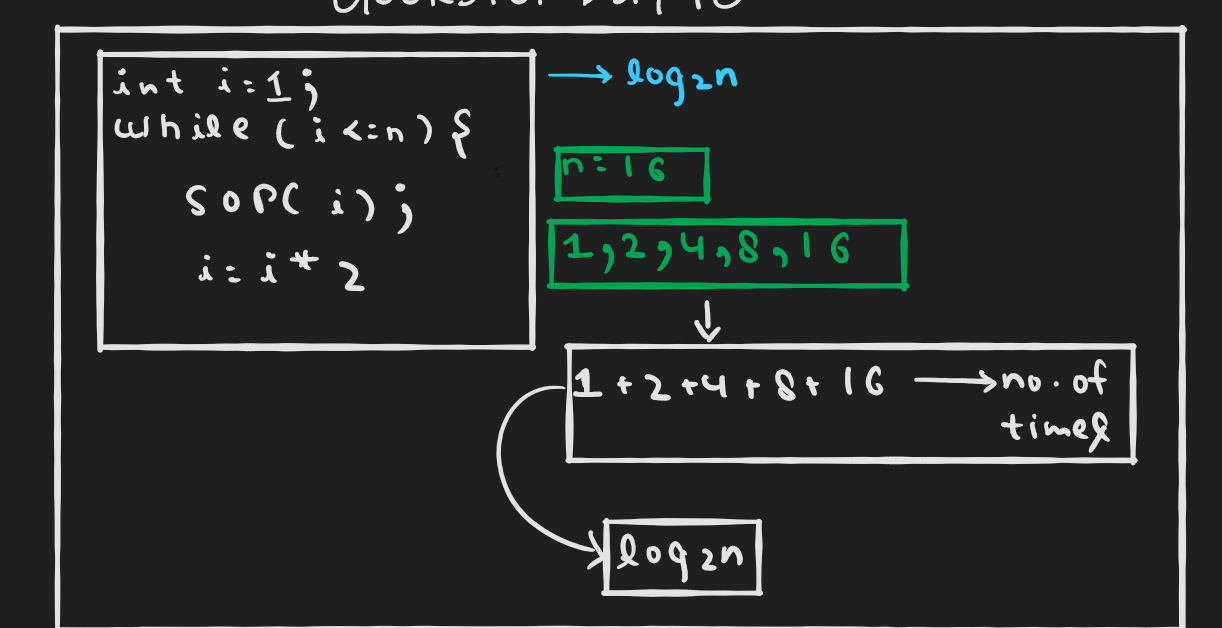 int i=1;
while (i<=n) {
SOP( i );
i = i * 2
→ log₂n
n=16
1,2,4,8,16
1+2+4+8+16 → no. of
times
log₂n